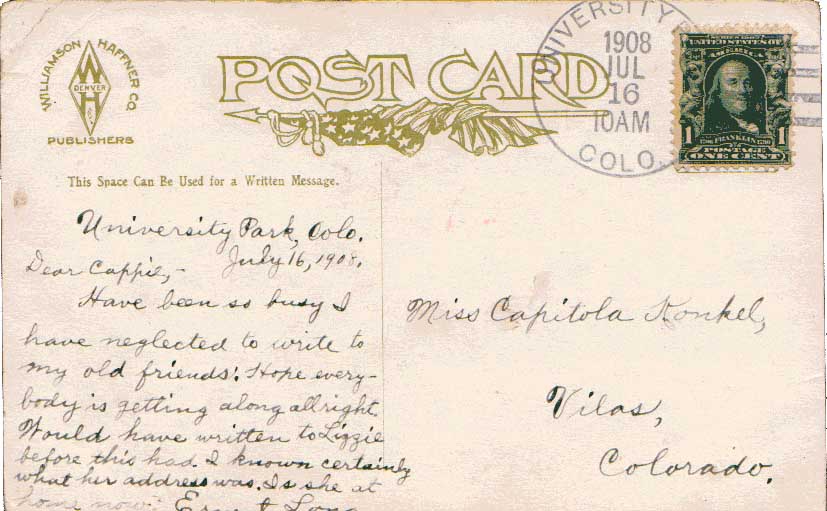 WILLIAMSON HAFFNER CO.
W
DENVER
H
PUBLISHERS
POST CARD
UNIVERSITY
1908
JUL
16
10AM
COLO.
SERIES 1902
UNITED STATES OF
AMERICA
1 FRANKLIN 1
POSTAGE
ONE CENT
This Space Can Be Used for a Written Message.
University Park, Colo.
July 16, 1908.
Dear Cappie,-
Have been so busy I
have neglected to write to
my old friends. Hope every-
body is getting along allright.
Would have written to Lizzie
before this had I known certainly
what her address was. Is she at
home now.
Long
Miss Capitola Konkel,
Vilas,
Colorado.